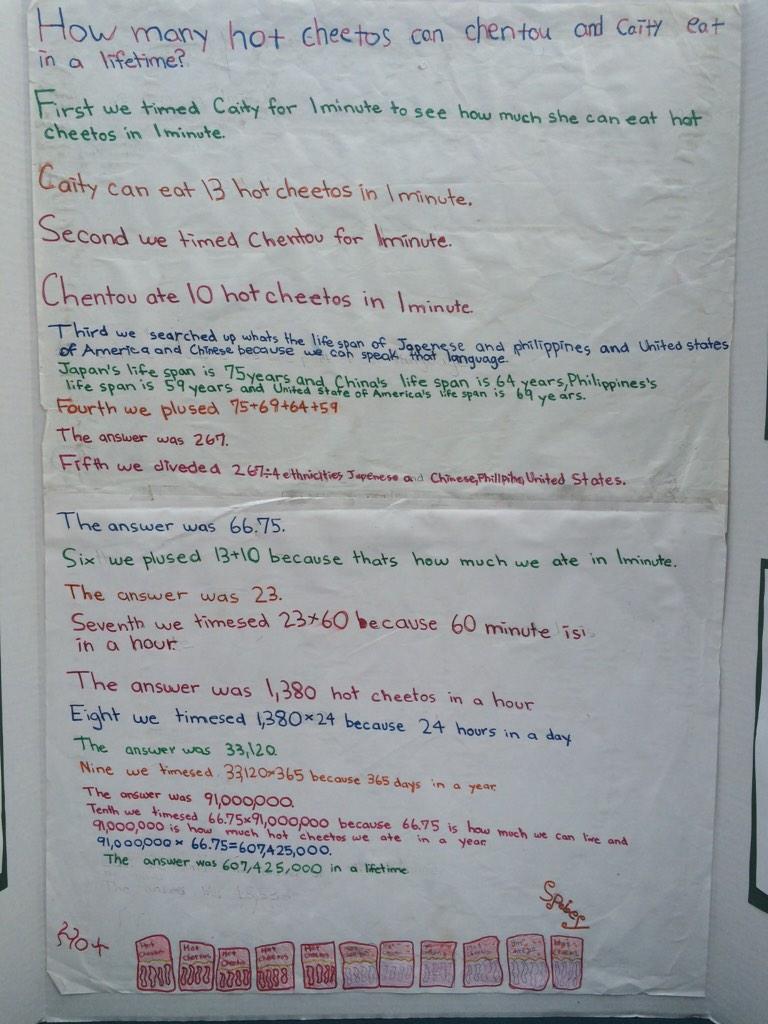 How many hot cheetos can chentou and Caity eat
in a lifetime?
First we timed Caity for 1 minute to see how much she can eat hot
cheetos in 1 minute.
Caity can eat 13 hot cheetos in 1 minute.
Second we timed Chentou for 1minute.
Chentou ate 10 hot cheetos in 1 minute.
Third we searched up whats the life span of Japenese and philippines and United states
of America and Chinese because we can speak that language.
Japan's life span is 75 years and China's life span is 64 years, Philippines's
life span is 59 years and United State of America's life span is 69 years.
Fourth we plused 75+69+64+59
The answer was 267.
Fifth we diveded 267÷4 ethnicities Japenese and Chinese, Phillpine, United States.
The answer was 66.75.
Six we plused 13+10 because thats how much we ate in 1minute.
The answer was 23.
Seventh we timesed 23×60 because 60 minute is
in a hour.
The answer was 1,380 hot cheetos in a hour
Eight we timesed 1,380×24 because 24 hours in a day
The answer was 33,120.
Nine we timesed 33,120×365 because 365 days in a year.
The answer was 91,000,000.
Tenth we timesed 66.75×91,000,000 because 66.75 is how much we can live and
91,000,000 is how much hot cheetos we ate in a year.
91,000,000 × 66.75=607,425,000.
The answer was 607,425,000 in a lifetime
Hot
Hot Cheetos
Hot Cheetos
Hot Cheetos
Hot Cheetos
Hot Cheetos